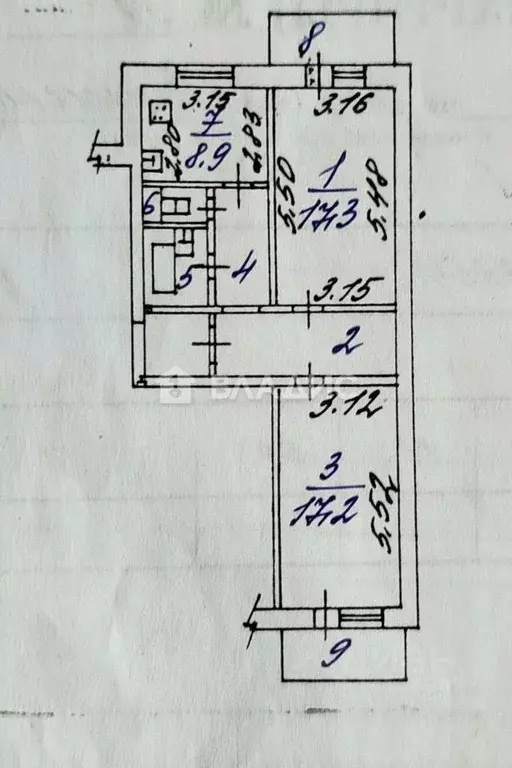 8
3.15
3.16
7
8.9
2.80
2.83
1
17.3
5.50
5.48
6
5
4
3.15
2
ВЛАДИС
3.12
3
17.2
5.52
9